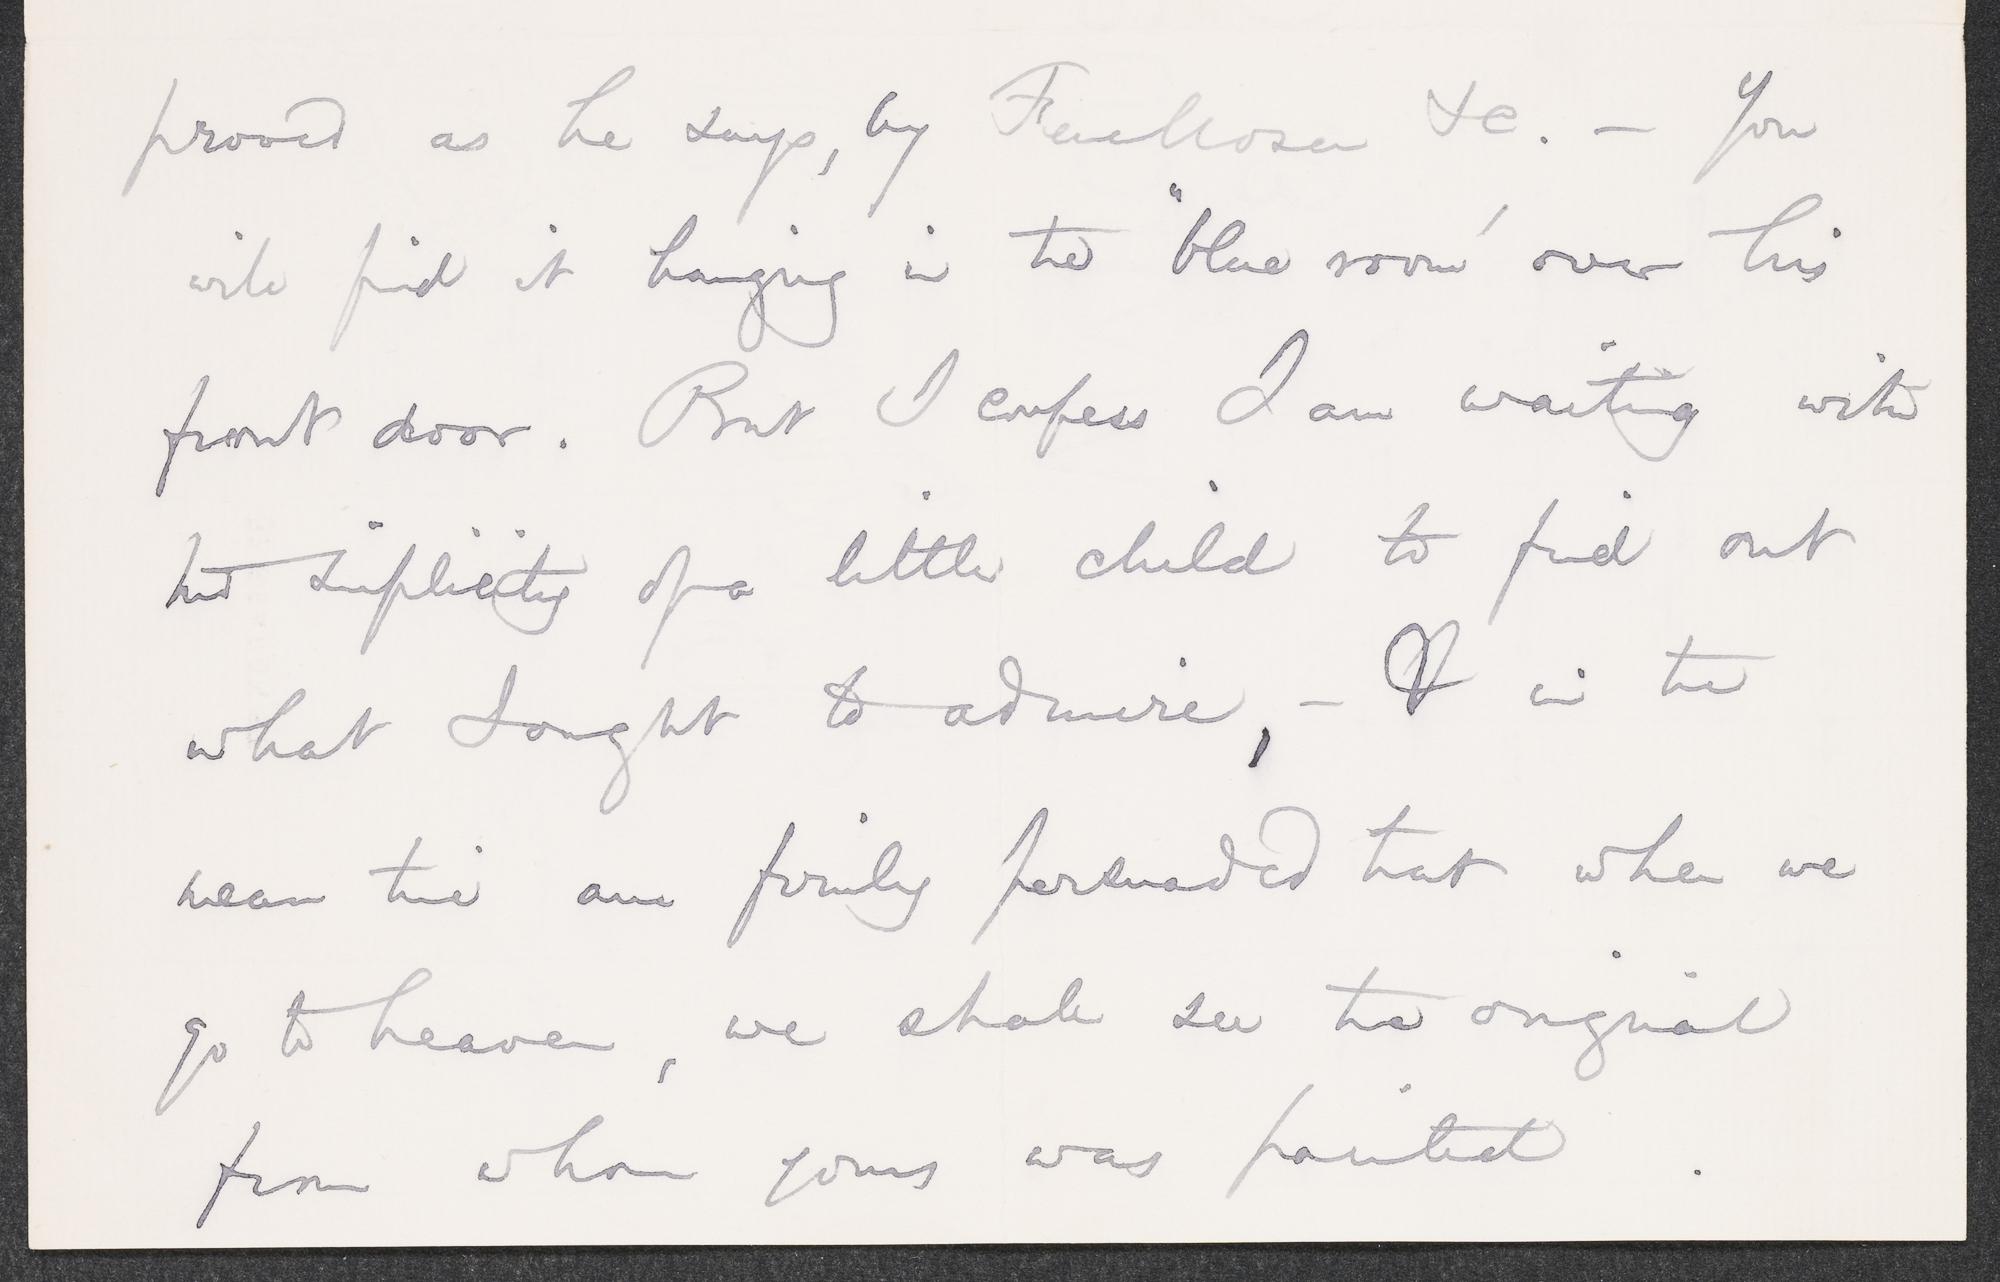 proved as he says, by &c. — You
will find it hanging in the "blue room' over his
front door. But I confess I am waiting with
the simplicity of a little child to find out
what I ought to admire, — & in the
mean time am firmly persuaded that when we
go to heaven, we shall see the original
from whom yours was painted.